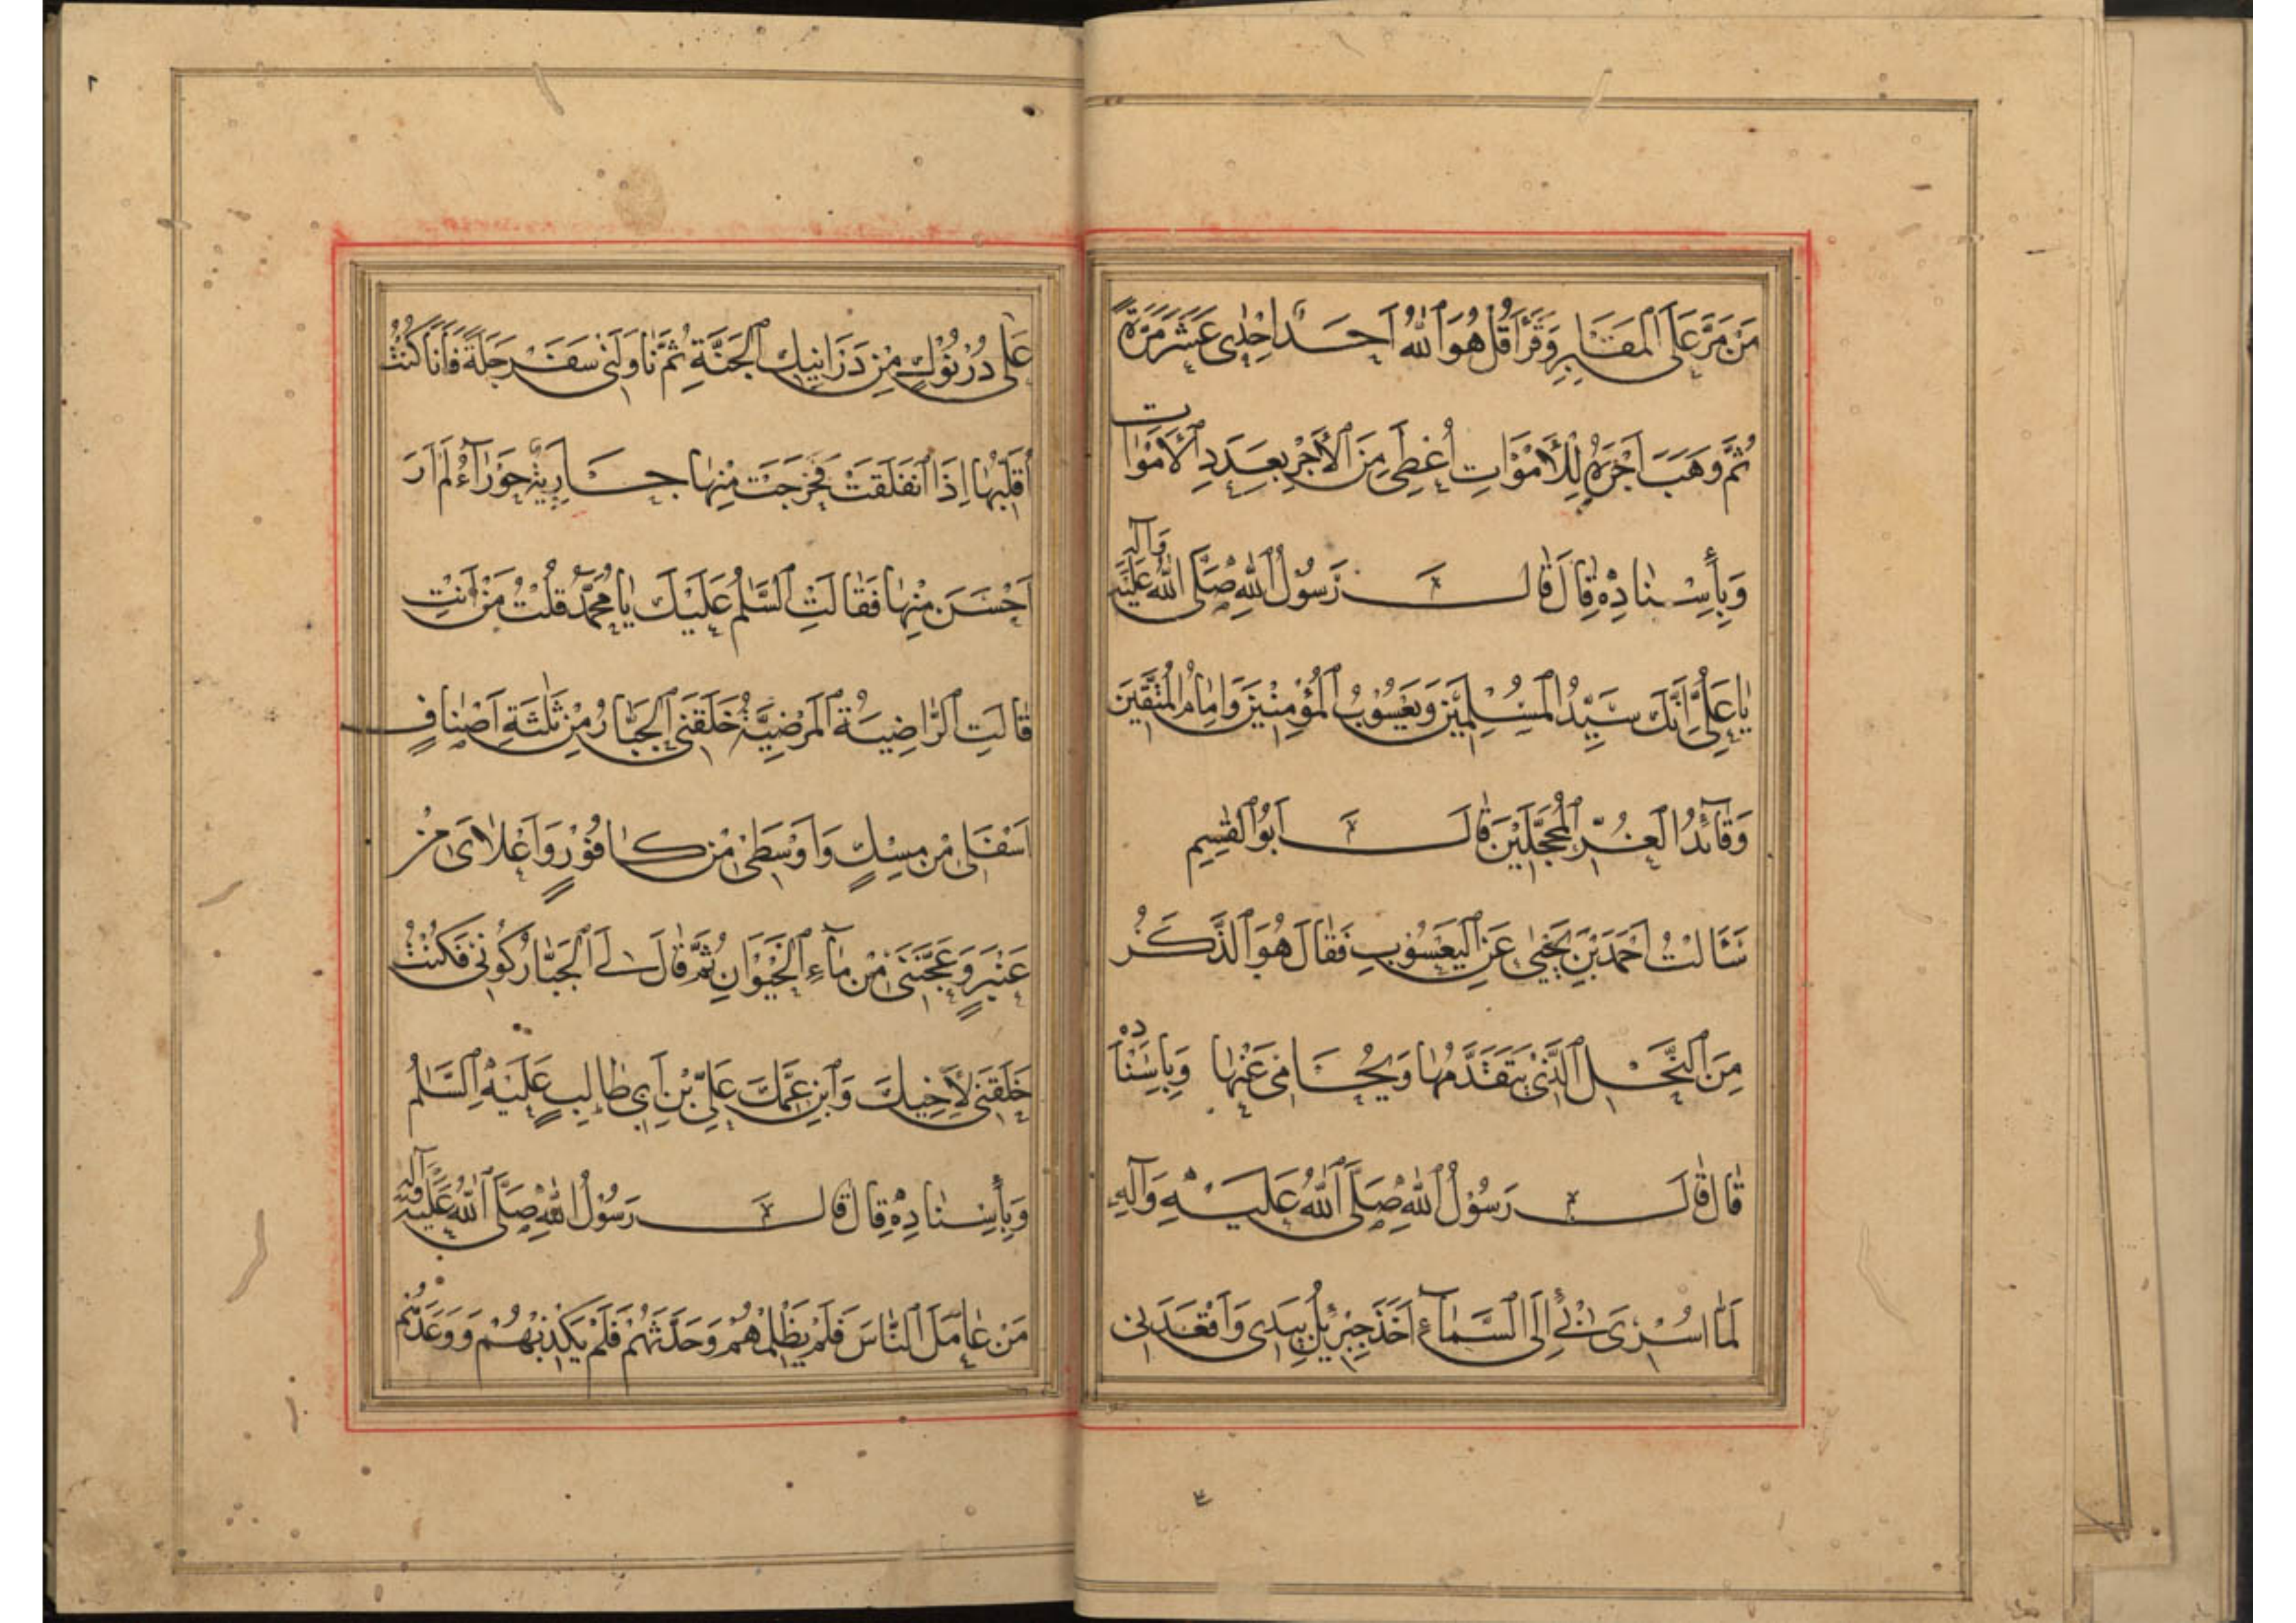 مَنْ مَرَّ عَلَى الْمَقَابِرِ وَقَرَأَ قُلْ هُوَ اللّٰهُ اَحَدٌ اِحْدٰى عَشَرَ مَرَّةً
ثُمَّ وَهَبَ اَجْرَهُ لِلْاَمْوَاتِ اُعْطِىَ مِنَ الْاَجْرِ بِعَدَدِ الْاَمْوَاتِ
وَبِاِسْنَادِهِ قَالَ قَالَ رَسُوْلُ اللّٰهِ صَلَّى اللّٰهُ عَلَيْهِ وَآلِهِ
يَا عَلِىُّ اِنَّكَ سَيِّدُ الْمُسْلِمِيْنَ وَيَعْسُوْبُ الْمُؤْمِنِيْنَ وَاِمَامُ الْمُتَّقِيْنَ
وَقَآئِدُ الْغُرِّ الْمُحَجَّلِيْنَ قَالَ اَبُو الْقٰسِمِ
سَئَالْتُ اَحْمَدَ بْنَ يَحْيٰى عَنِ الْيَعْسُوْبِ فَقَالَ هُوَ الذَّكَرُ
مِنَ النَّحْلِ الَّذِىْ يَتَقَدَّمُهَا وَيُحَامِىْ عَنْهَا وَبِاِسْنَادِهِ
قَالَ قَالَ رَسُوْلُ اللّٰهِ صَلَّى اللّٰهُ عَلَيْهِ وَآلِهِ
لَمَّا اُسْرِىَ بِىْ اِلَى السَّمَآءِ اَخَذَ جِبْرِئِلُ بِيَدِى وَاَقْعَدَنِى
عَلٰى دُرْنُوْكٍ مِنْ دَرَانِيْكِ الْجَنَّةِ ثُمَّ نَاوَلَنِى سَفَرْجَلَةً فَاَنَا كُنْتُ
اُقَلِّبُهَا اِذَا انْفَلَقَتْ فَخَرَجَتْ مِنْهَا جَارِيَةٌ حَوْرَآءُ لَمْ اَرَ
اَحْسَنَ مِنْهَا فَقَالَتِ السَّلٰمُ عَلَيْكَ يَا مُحَمَّدُ قُلْتُ مَنْ اَنْتِ
قَالَتِ الرَّاضِيَةُ الْمَرْضِيَّةُ خَلَقَنِى الْجَبَّارُ مِنْ ثَلٰثَةِ اَصْنَافٍ
اَسْفَلِى مِنْ مِسْكٍ وَاَوْسَطِىْ مِنْ كَافُوْرٍ وَاَعْلَاىَ مِنْ
عَنْبَرٍ وَعَجَّنَنِىْ مِنْ مَآءِ الْحَيْوَانِ ثُمَّ قَالَ لِىَ الْجَبَّارُ كُوْنِىْ فَكُنْتُ
خَلَقَنِىْ لِاَخِيْكَ وَابْنِ عَمِّكَ عَلِىِّ بْنِ اَبِى طَالِبٍ عَلَيْهِ السَّلٰمُ
وَبِاِسْنَادِهِ قَالَ قَالَ رَسُوْلُ اللّٰهِ صَلَّى اللّٰهُ عَلَيْهِ وَآلِهِ
مَنْ عَامَلَ النَّاسَ فَلَمْ يَظْلِمْهُمْ وَحَدَّثَهُمْ فَلَمْ يَكْذِبْهُمْ وَوَعَدَهُمْ